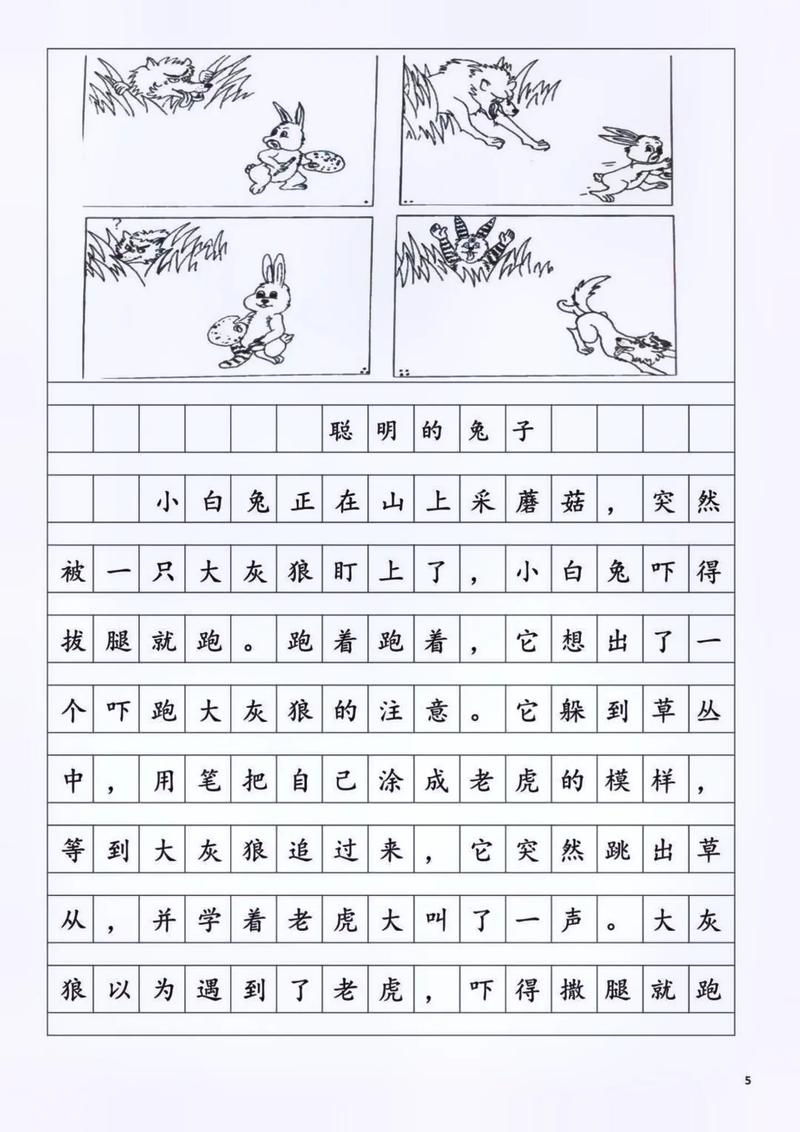 聪明的兔子
小白兔正在山上采蘑菇，突然
被一只大灰狼盯上了，小白兔吓得
拔腿就跑。跑着跑着，它想出了一
个吓跑大灰狼的注意。它躲到草丛
中，用笔把自己涂成老虎的模样，
等到大灰狼追过来，它突然跳出草
从，并学着老虎大叫了一声。大灰
狼以为遇到了老虎，吓得撒腿就跑
5